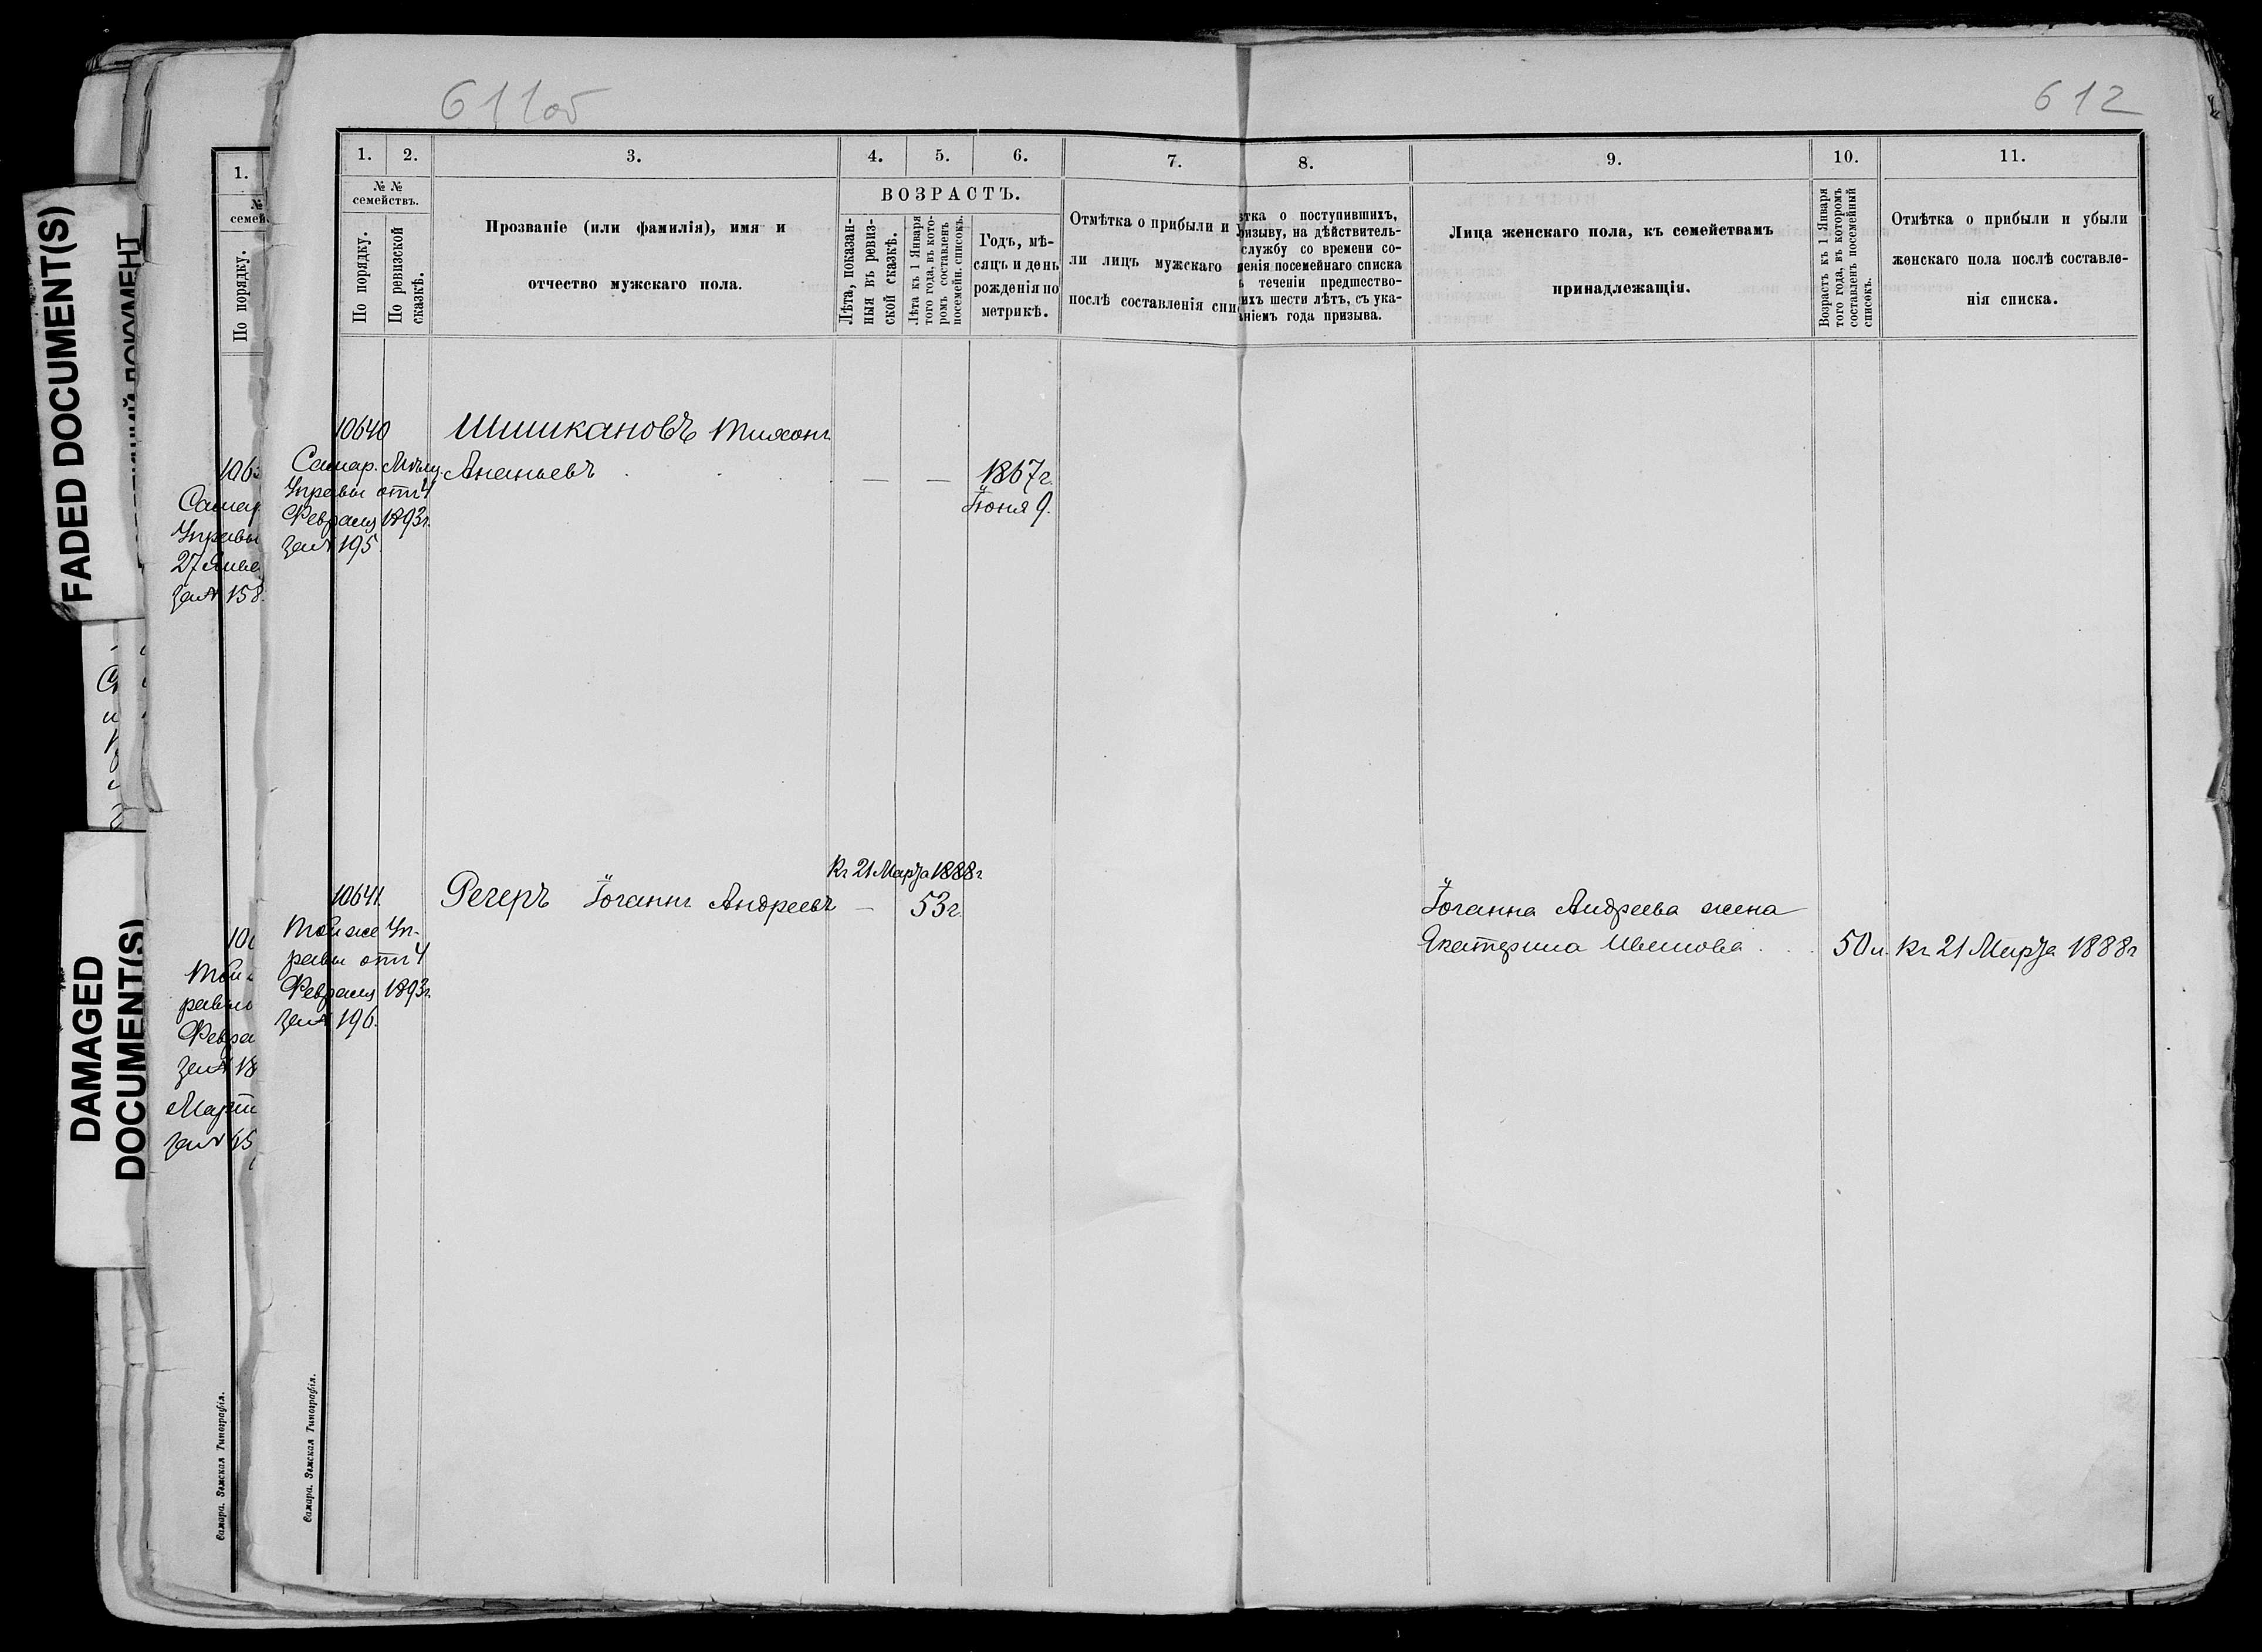 611об
612
FADED DOCUMENT(S)
DAMAGED
DOCUMENT(S)
1.
2.
3.
4.
5.
6.
7.
8.
9.
10.
11.
№ №
семействъ.
По порядку.
По ревизской
сказкѣ.
Прозваніе (или фамилія), имя и
отчество мужскаго пола.
ВОЗРАСТЪ.
Лѣта, показан-
ныя въ ревиз-
ской сказкѣ.
Лѣта къ 1 Января
того года, въ кото-
ромъ составленъ
посемейн. списокъ.
Годъ, мѣ-
сяцъ и день
рожденія по
метрикѣ.
Отмѣтка о прибыли и
ли лицъ мужскаго
послѣ составленія спи
тка о поступившихъ,
ризыву, на дѣйствитель-
службу со времени со-
ленія посемейнаго списка
теченіи предшество-
ихъ шести лѣтъ, съ ука-
ніемъ года призыва.
Лица женскаго пола, къ семействамъ
принадлежащія.
Возрастъ къ 1 Января
того года, въ которомъ
составленъ посемейный
списокъ.
Отмѣтка о прибыли и убыли
женскаго пола послѣ составле-
нія списка.
10640
Самар. Мѣщ.
Управы отъ 4
Февраля 1893г.
за № 195
Шишкановъ Тихонъ
Ананьевъ
— —
1867г.
Іюня 9.
10641.
Той же Уп-
равы отъ 4
Февраля 1893г.
за № 196.
Регеръ Іоганнъ Андреевъ
—
Къ 21 Марта 1888г
53г.
Іоганна Андреева жена
Екатерина Иванова
50 л.
Къ 21 Марта 1888г
1.
№
семей
По порядку.
Самар
Управы
27 Янва
за № 158.
Той
равы
Февра
за № 18
Марта
Самара. Земская Типографія.
Самара. Земская Типографія.